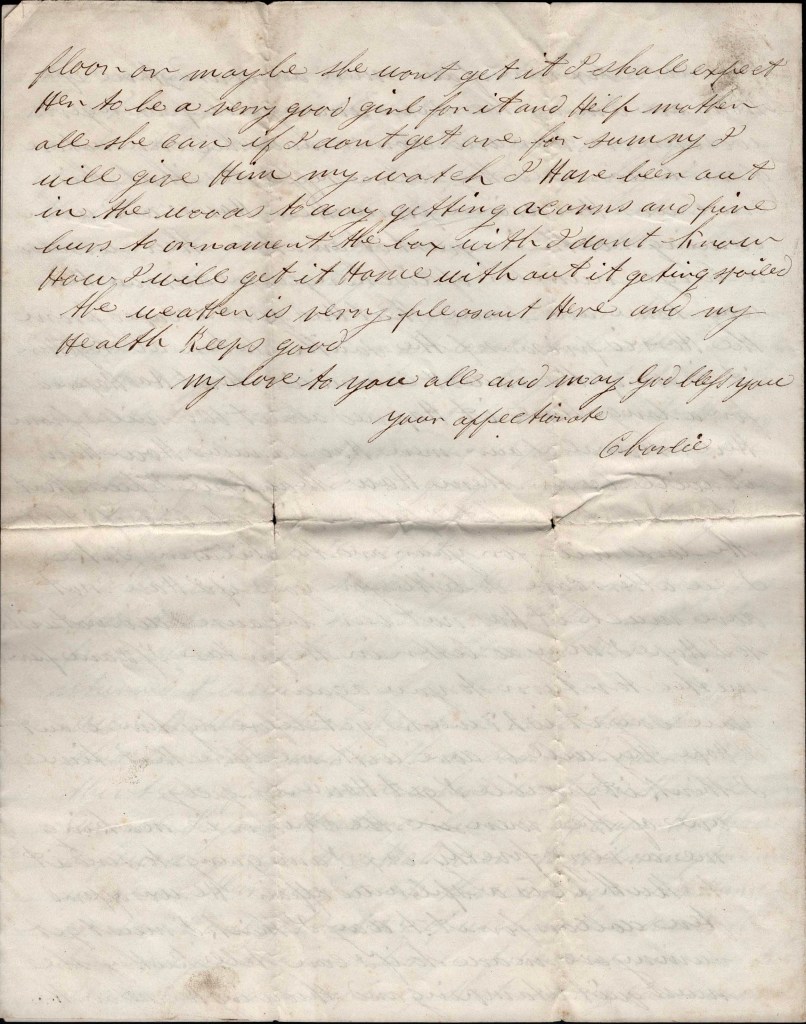 floor or maybe she wont get it I shall expect
Her to be a very good girl for it and Help mother
all she can if I dont get one for sumny I
will give Him my watch I Have been out
in the woods to day getting acorns and pine
burs to ornament the box with I dont know
How I will get it Home with out it geting spoiled
the weather is verry pleasant Here and my
Health Keeps good
my love to you all and may God bless you
your affectionate
Charlie